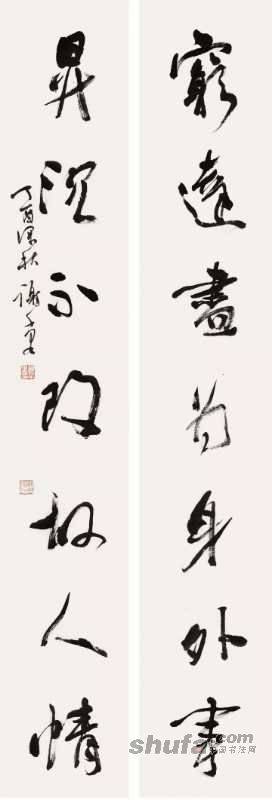 窮達盡為身外事
昇沉不改故人情
丁酉深秋
shufa.com
中国书法网